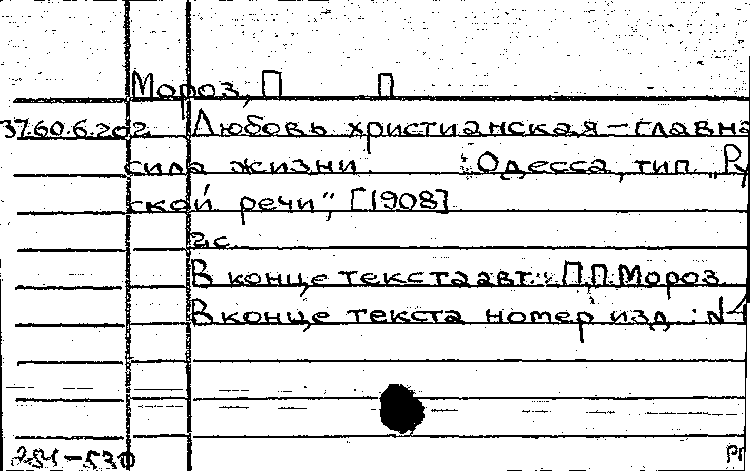 Мороз, П П
37.60.6.202 Любовь христианская – главна
сила жизни. Одесса, тип. „Ру
ской речи“, [1908]
2 с.
В конце текста авт.: П.П. Мороз
В конце текста номер изд.: N1
254-530